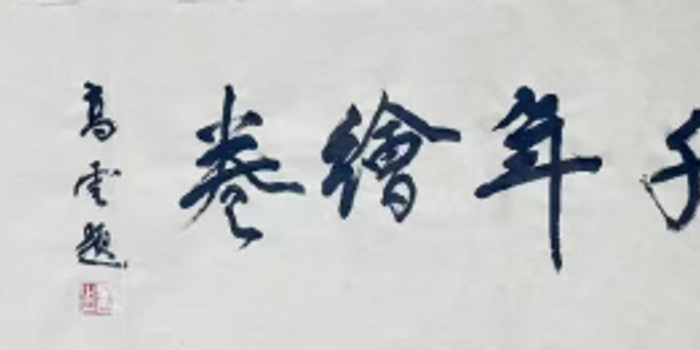 年繪卷
高雲題